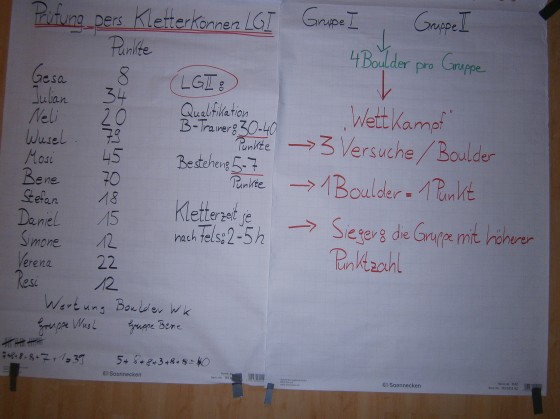 Prüfung pers Kletterkönnen LG I
Punkte
Gesa 8
Julian 34
Neli 20
Wusel 79
Mosi 45
Bene 70
Stefan 18
Daniel 15
Simone 12
Verena 22
Resi 12
LG II:
Qualifikation
B-Trainer: 30-40
Punkte
Bestehen: 5-7
Punkte
Kletterzeit je
nach Fels: 2-5h
Wertung Boulder WK
Gruppe Wusl Gruppe Bene
5+5+8+3+
Gruppe I Gruppe II
4 Boulder pro Gruppe
"Wettkampf"
→ 3 Versuche / Boulder
→ 1 Boulder = 1 Punkt
→ Sieger: die Gruppe mit höherer
Punktzahl
Soennecken
Soennecken